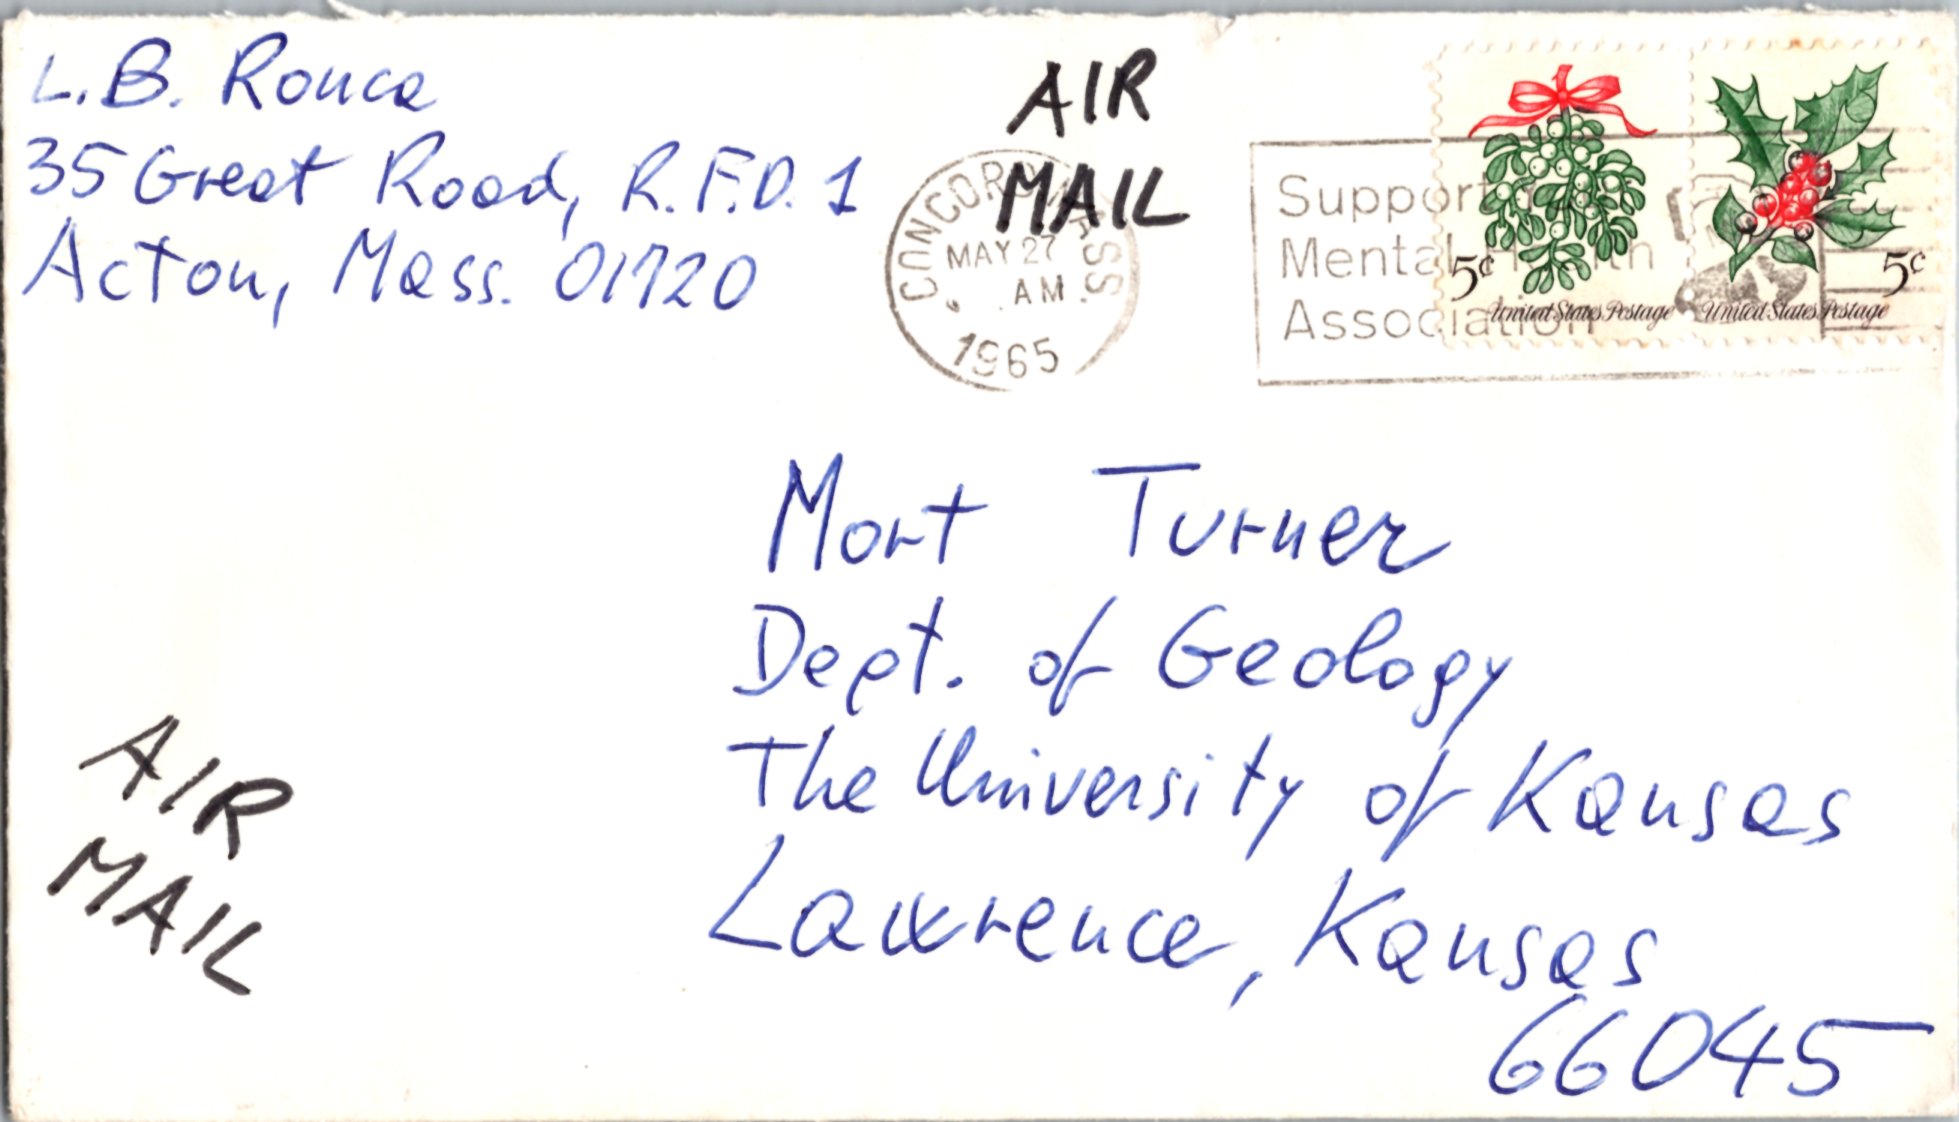 L.B. Ronca
35 Great Road, R.F.D. 1
Acton, Mass. 01720
AIR
MAIL
CONCORD MASS
MAY 27
AM
1965
Support
Mental Health
Association
5¢
United States Postage
5¢
United States Postage
Mort Turner
Dept. of Geology
The University of Kansas
Lawrence, Kansas
66045
AIR
MAIL